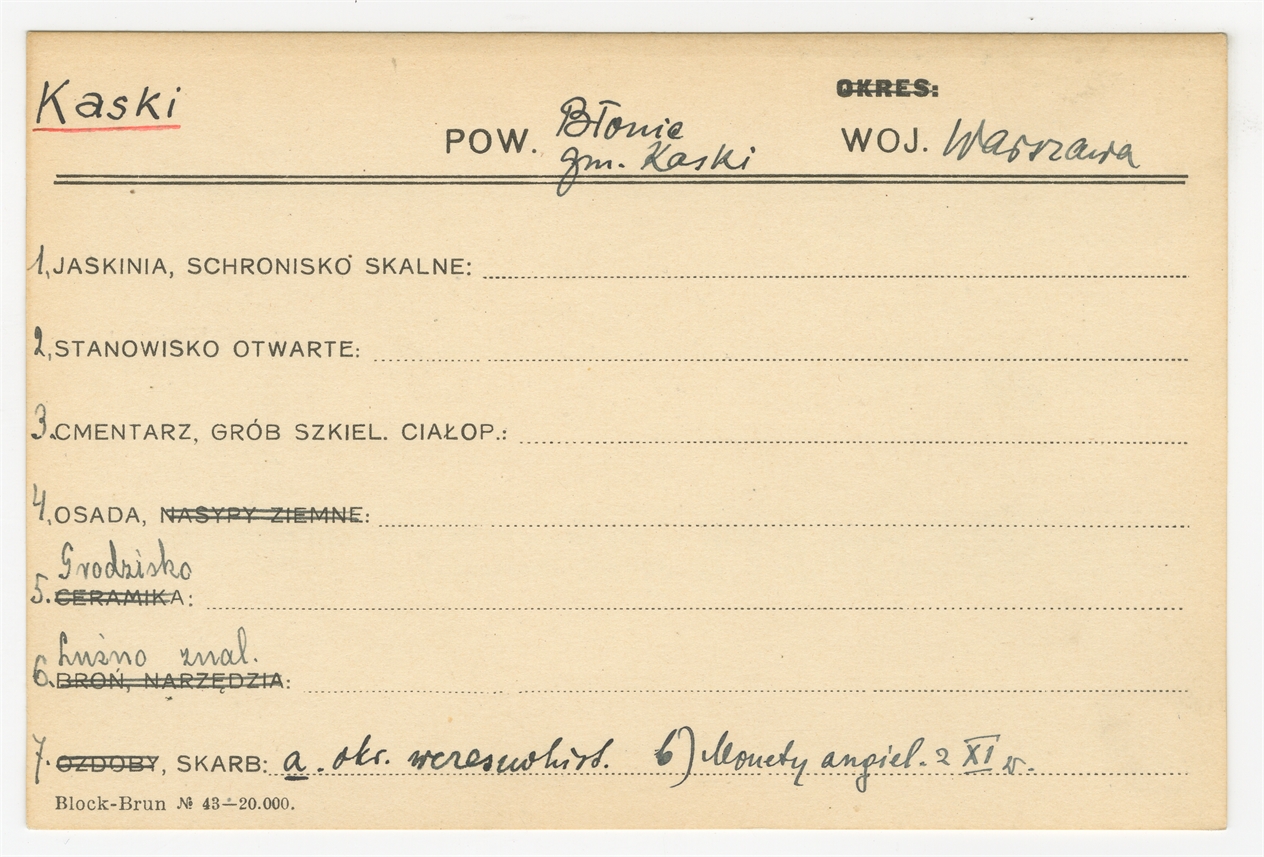 Kaski
OKRES:
POW. Błonie
gm. Kaski
WOJ. Warszawa
1, JASKINIA, SCHRONISKO SKALNE:
2, STANOWISKO OTWARTE:
3. CMENTARZ, GRÓB SZKIEL. CIAŁOP.:
4, OSADA, NASYPY ZIEMNE:
Grodzisko
5. CERAMIKA:
Luźno znal.
6. BROŃ, NARZĘDZIA:
7. OZDOBY, SKARB: a. okr. wczesnohist. b) Monety angiel. z XI w.
Block-Brun № 43—20.000.